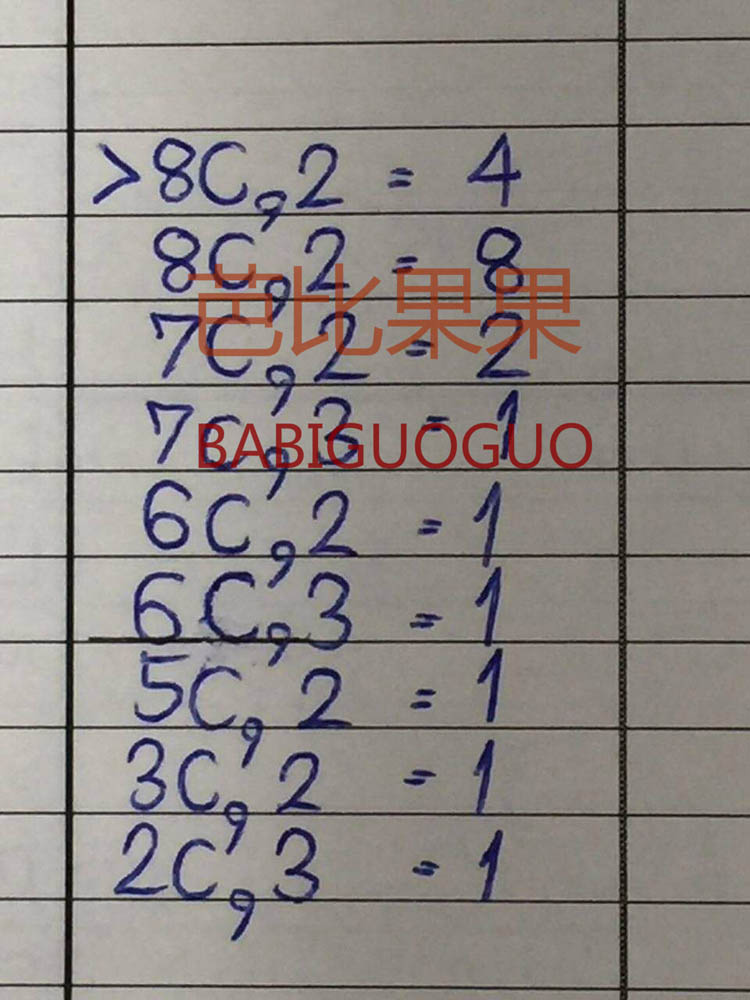 >8C,2 = 4
8C,2 = 8
芭比果果
7C,2 = 2
7C,3 = 1
BABIGUOGUO
6C,2 = 1
6C,3 = 1
5C,2 = 1
3C,2 = 1
2C,3 = 1